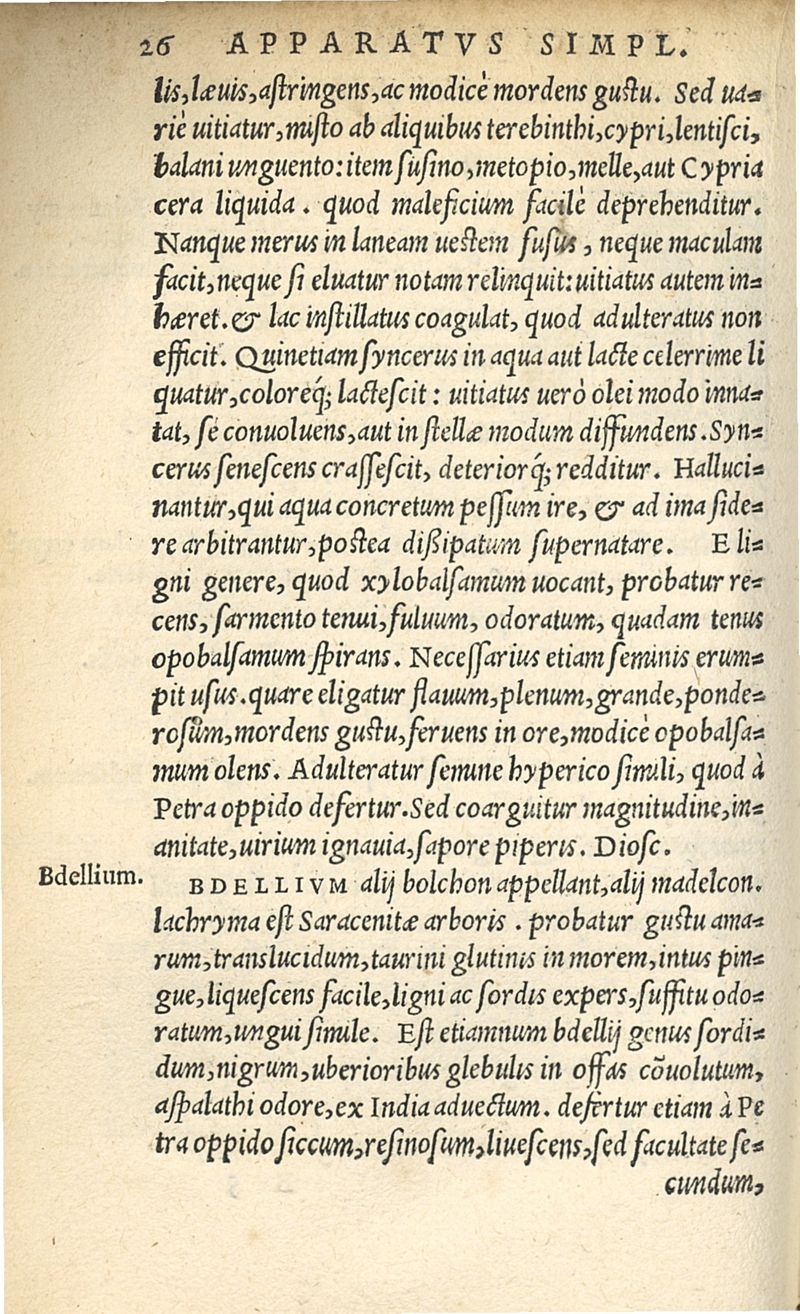 26 APPARATVS SIMPL.
lis, læuis, astringens, ac modicè mordens gustu. Sed ua-
riè uitiatur, misto ab aliquibus terebinthi, cypri, lentisci,
balani unguento: item susino, metopio, melle, aut Cypria
cera liquida. quod maleficium facilè deprehenditur.
Nanque merus in laneam uestem fusus, neque maculam
facit, neque si eluatur notam relinquit: uitiatus autem in-
hæret. & lac instillatus coagulat, quod adulteratus non
efficit. Quinetiam syncerus in aqua aut lacte celerrime li
quatur, coloreq́; lactescit: uitiatus uerò olei modo inna-
tat, se conuoluens, aut in stellæ modum diffundens. Syn-
cerus senescens crassescit, deteriorq́; redditur. Halluci-
nantur, qui aqua concretum pessum ire, & ad ima side-
re arbitrantur, postea dißipatum supernatare. E li-
gni genere, quod xylobalsamum uocant, probatur re-
cens, sarmento tenui, fuluum, odoratum, quadam tenus
opobalsamum spirans. Necessarius etiam seminis erum-
pit usus. quare eligatur flauum, plenum, grande, ponde-
rosum, mordens gustu, feruens in ore, modicè opobalsa-
mum olens. Adulteratur semine hyperico simili, quod à
Petra oppido defertur. Sed coarguitur magnitudine, in-
anitate, uirium ignauia, sapore piperis. Diosc.
Bdellium.
BDELLIVM alij bolchon appellant, alij madelcon.
lachryma est Saracenitæ arboris. probatur gustu ama-
rum, translucidum, taurini glutinis in morem, intus pin-
gue, liquescens facile, ligni ac sordis expers, suffitu odo-
ratum, ungui simile. Est etiamnum bdellij genus sordi-
dum, nigrum, uberioribus glebulis in offas cōuolutum,
aspalathi odore, ex India aduectum. defertur etiam à Pe
tra oppido siccum, resinosum, liuescens, sed facultate se-
cundum,